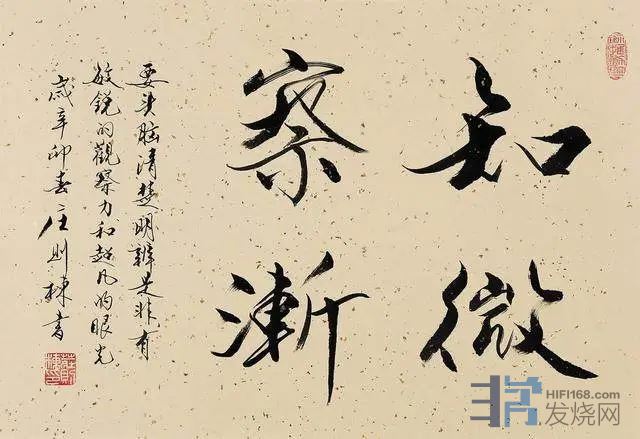 知微
察漸
要头脑清楚明辨是非有
敏锐的觀察力和超凡的眼光
歲辛卯春庄则栋書
莊則棟印
HIFI168.com
发烧网